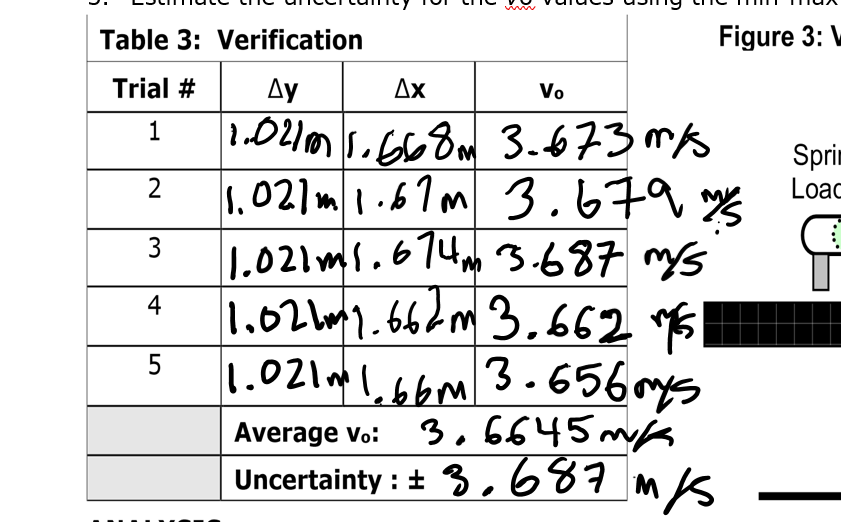 5. Estimate the uncertainty for the vo values using the min-max
Table 3: Verification
Figure 3: V
Trial # Δy Δx vₒ
1 1.021m 1.668m 3.673 m/s
Sprin
2 1.021m 1.67m 3.679 m/s
Load
3 1.021m 1.674m 3.687 m/s
4 1.021m 1.662m 3.662 m/s
5 1.021m 1.66m 3.656 m/s
Average vₒ: 3.6645 m/s
Uncertainty : ± 3.687 m/s
ANALYSIS